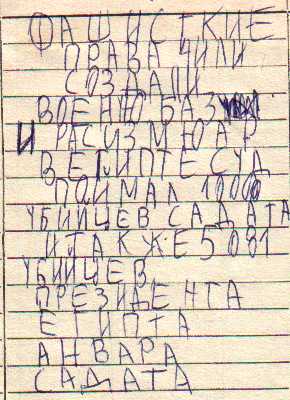 ФАШИСТКИЕ
ПРАВА ЧИЛИ
СОЗДАЛИ
ВОЕНУЮ БАЗ
И РАСИЗМ ЮАР
ВЕГИПТЕ СУД
ПОЙМАЛ 10000
УБИЙЦЕВ САДАТА
И ТАКЖЕ 5 081
УБИЙЦЕВ
ПРЕЗИДЕНТА
ЕГИПТА
АНВАРА
САДАТА